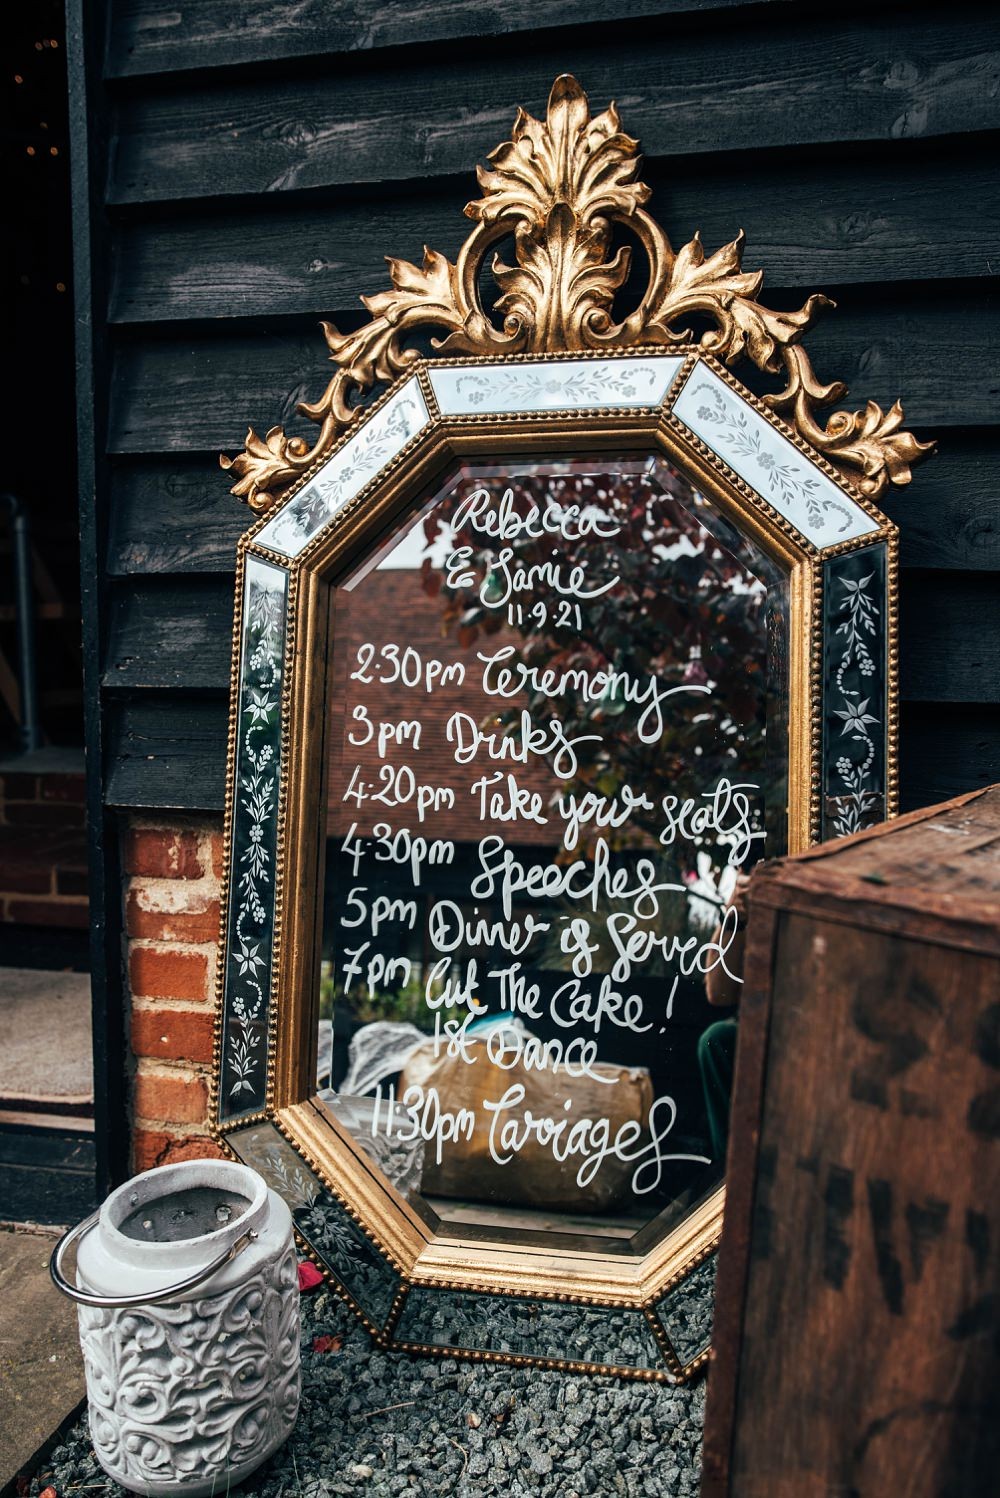 Rebecca
& Jamie
11.9.21
2:30pm Ceremony
3pm Drinks
4:20pm Take your seats
4:30pm Speeches
5pm Dinner is Served
7pm Cut The Cake!
1st Dance
11:30pm Carriages